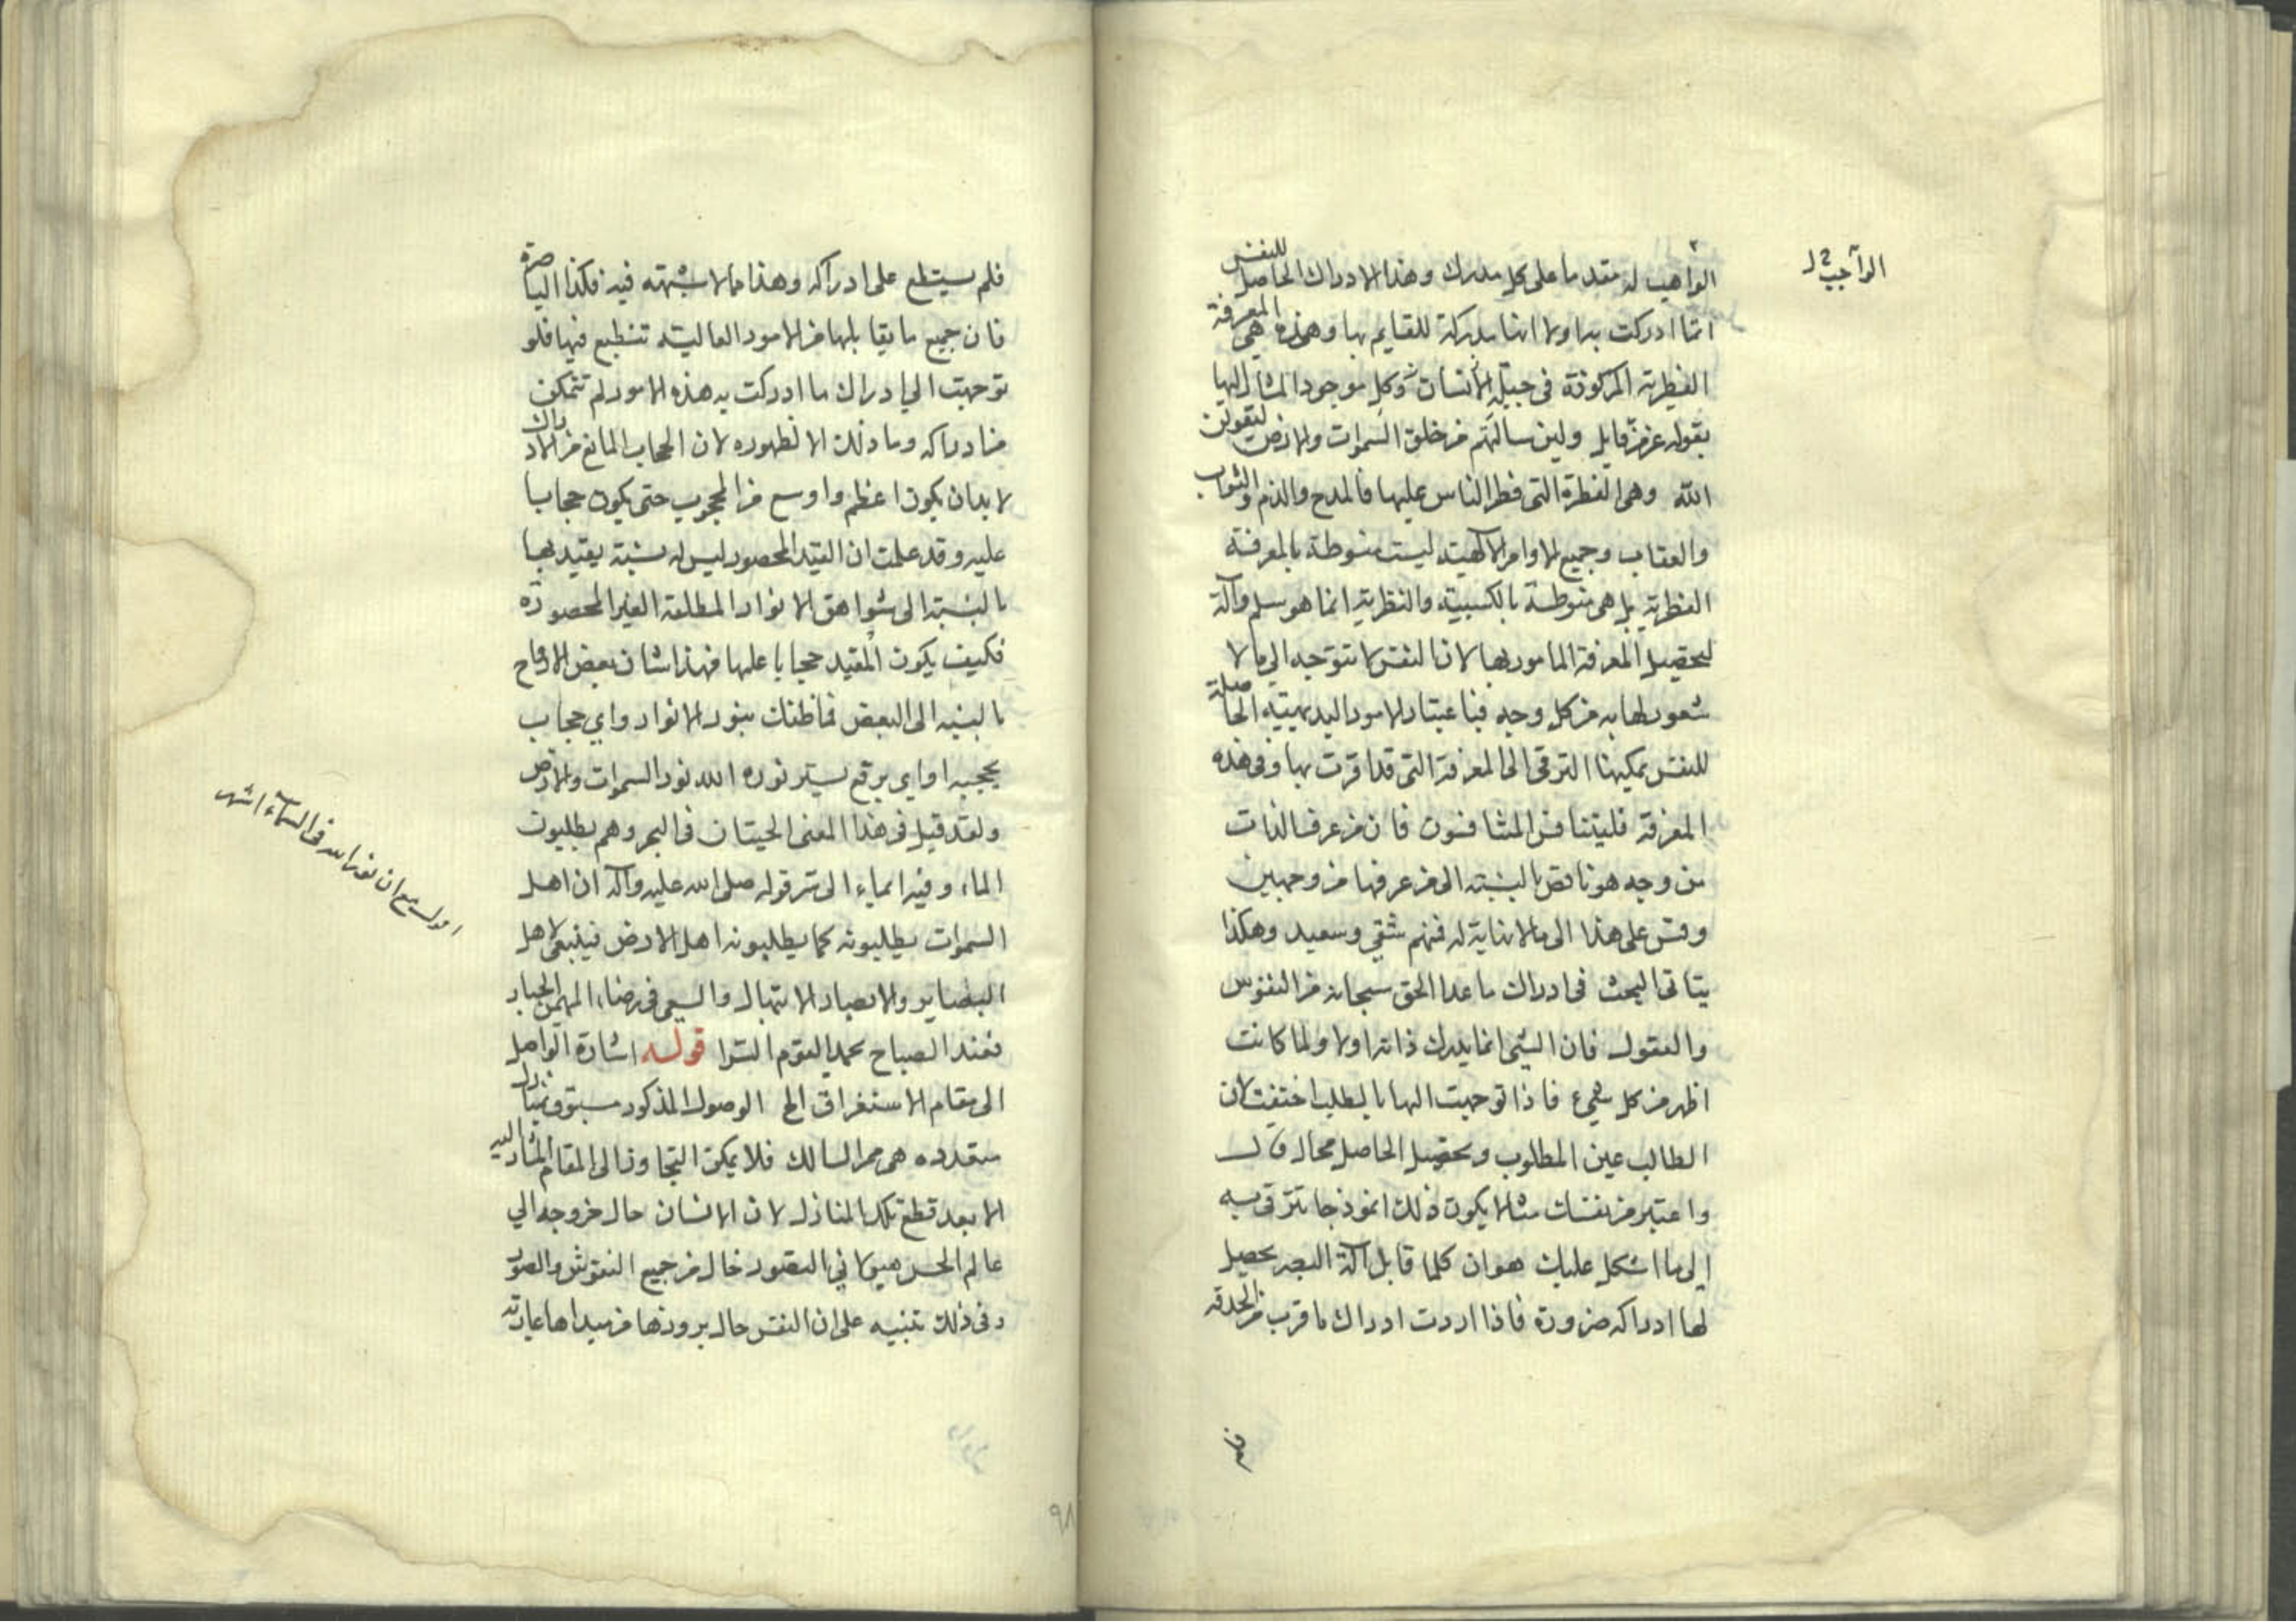 الواهب له مقدما على كل مدرك وهذا الادراك الحاصل للنفس
الواجب ل
انما ادركت به اولا انها مدركة للقايم بها وهذه هى المعرفة
الفطرية المركوزة فى جبلة الانسان وكل موجود المشار اليها
بقوله عز من قايل ولين سالتهم من خلق السموات والارض ليقولن
الله وهى الفطرة التى فطر الناس عليها فالمدح والذم والثواب
والعقاب وجميع الاوامر الالهية ليست منوطة بالمعرفة
الفطرية بل هى منوطة بالكسبية والنظرية انما هو سلم وآلة
لتحصيل المعرفة المامور بها لان النفس لا تتوجه الى ما لا
شعور لها به من كل وجه فباعتبار الامور البديهية الحاصلة
للنفس يمكنها الترقى الى المعرفة التى قد اقرت بها وفى هذه
المعرفة فليتنافس المتنافسون فان من عرف الذات
من وجه هو ناقص بالنسبة الى من عرفها من وجهين
وقس على هذا الى ما لا نهاية له فمنهم شقي وسعيد وهكذا
يتاتى البحث فى ادراك ما عدا الحق سبحانه من النفوس
والعقول فان الشى انما يدرك ذاته اولا ولما كانت
اظهر من كل شيء فاذا توجهت اليها بالطلب اختفت لان
الطالب عين المطلوب وتحصيل الحاصل محال
واعتبر من نفسك مثالا يكون ذلك انموذجا تترقى به
الى ما اشكل عليك هو ان كلما قابل آلة البصر يحصل
لها ادراكه ضرورة فاذا اردت ادراك ما قرب من الحدقة
فلم يستطع على ادراكه وهذا مما لا شبهة فيه فكذا الباصرة
فان جميع ما يقابلها من الامور العالية تنطبع فيها فلو
توجهت الى ادراك ما ادركت به هذه الامور لم تتمكن
من ادراكه وما ذلك الا لظهوره لان الحجاب المانع من الادراك
لا بد ان يكون اعظم واوسع من المحجوب حتى يكون حجابا
عليه وقد علمت ان القيد المحصور ليس له نسبة يعتد بها
بالنسبة الى شواهق الانوار المطلقة الغير المحصورة
فكيف يكون المقيد حجابا عليها فهذا شان بعض الارواح
بالنسبه الى البعض فما ظنك بنور الانوار واي حجاب
يحجبه او اي برقع يستر نوره الله نور السموات والارض
ولقد قيل فى هذا المعنى الحيتان فى البحر وهم يطلبون
الماء وفيه ايماء الى سر قوله صلى الله عليه وآله ان اهل
السموات يطلبونه كما يطلبونه اهل الارض فينبغى لاهل
البصاير والابصار الابتهال والسعى فى رضاء المهيمن الجبار
فعند الصباح يحمد القوم السرا قوله اشارة الواصل
الى مقام الاستغراق الح الوصول المذكور مسبوق بمنازل
متعدده هى ممر السالك فلا يمكن التجاوز الى المقام المشار اليه
الا بعد قطع تلك المنازل لان الانسان حال خروجه الى
عالم الحس هيولانى التصور خال من جميع النقوش والصور
وفى ذلك تنبيه على ان النفس حال بروزها من مبداها عارية